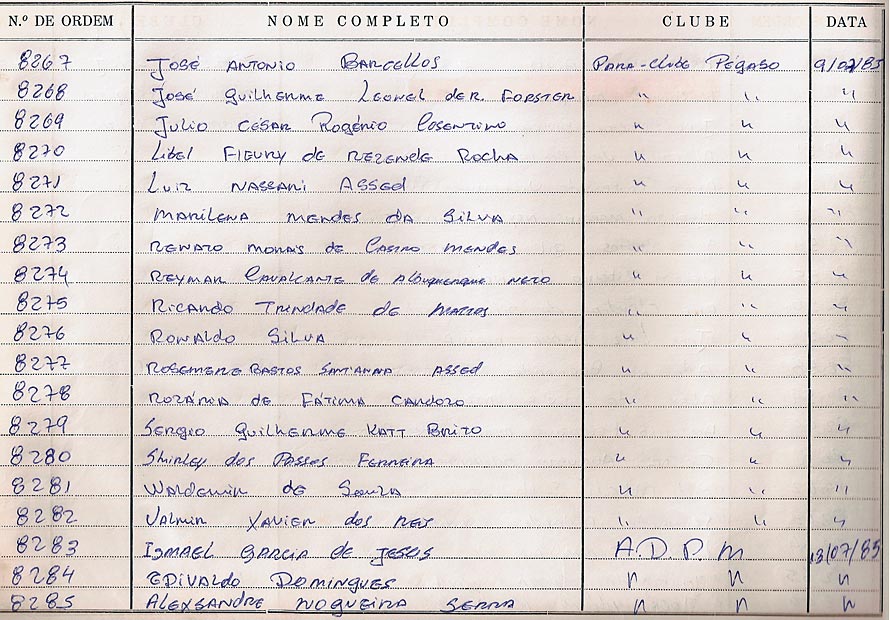 N.º DE ORDEM NOME COMPLETO CLUBE DATA
8267 José Antonio Barcellos Para-Clube Pégaso 9/07/85
8268 José Guilherme Leonel de R. Forster " " "
8269 Julio César Rogério Cosentino " " "
8270 Libel Fleury de Rezende Rocha " " "
8271 Luiz Nassani Assed " " "
8272 Marilena Mendes da Silva " " "
8273 Renato Morais de Castro Mendes " " "
8274 Reymar Cavalcante de Albuquerque Neto " " "
8275 Ricardo Trindade de Mattos " " "
8276 Ronaldo Silva " " "
8277 Rosemere Bastos Sant'anna Assed " " "
8278 Rozária de Fátima Cardozo " " "
8279 Sergio Guilherme Katt Brito " " "
8280 Shirley dos Passos Ferreira " " "
8281 Waldemir de Souza " " "
8282 Valmir Xavier dos Reis " " "
8283 Ismael Garcia de Jesus A.D.P.M 18/07/85
8284 Edivaldo Domingues " " "
8285 Alexsandre Nogueira Serra " " "